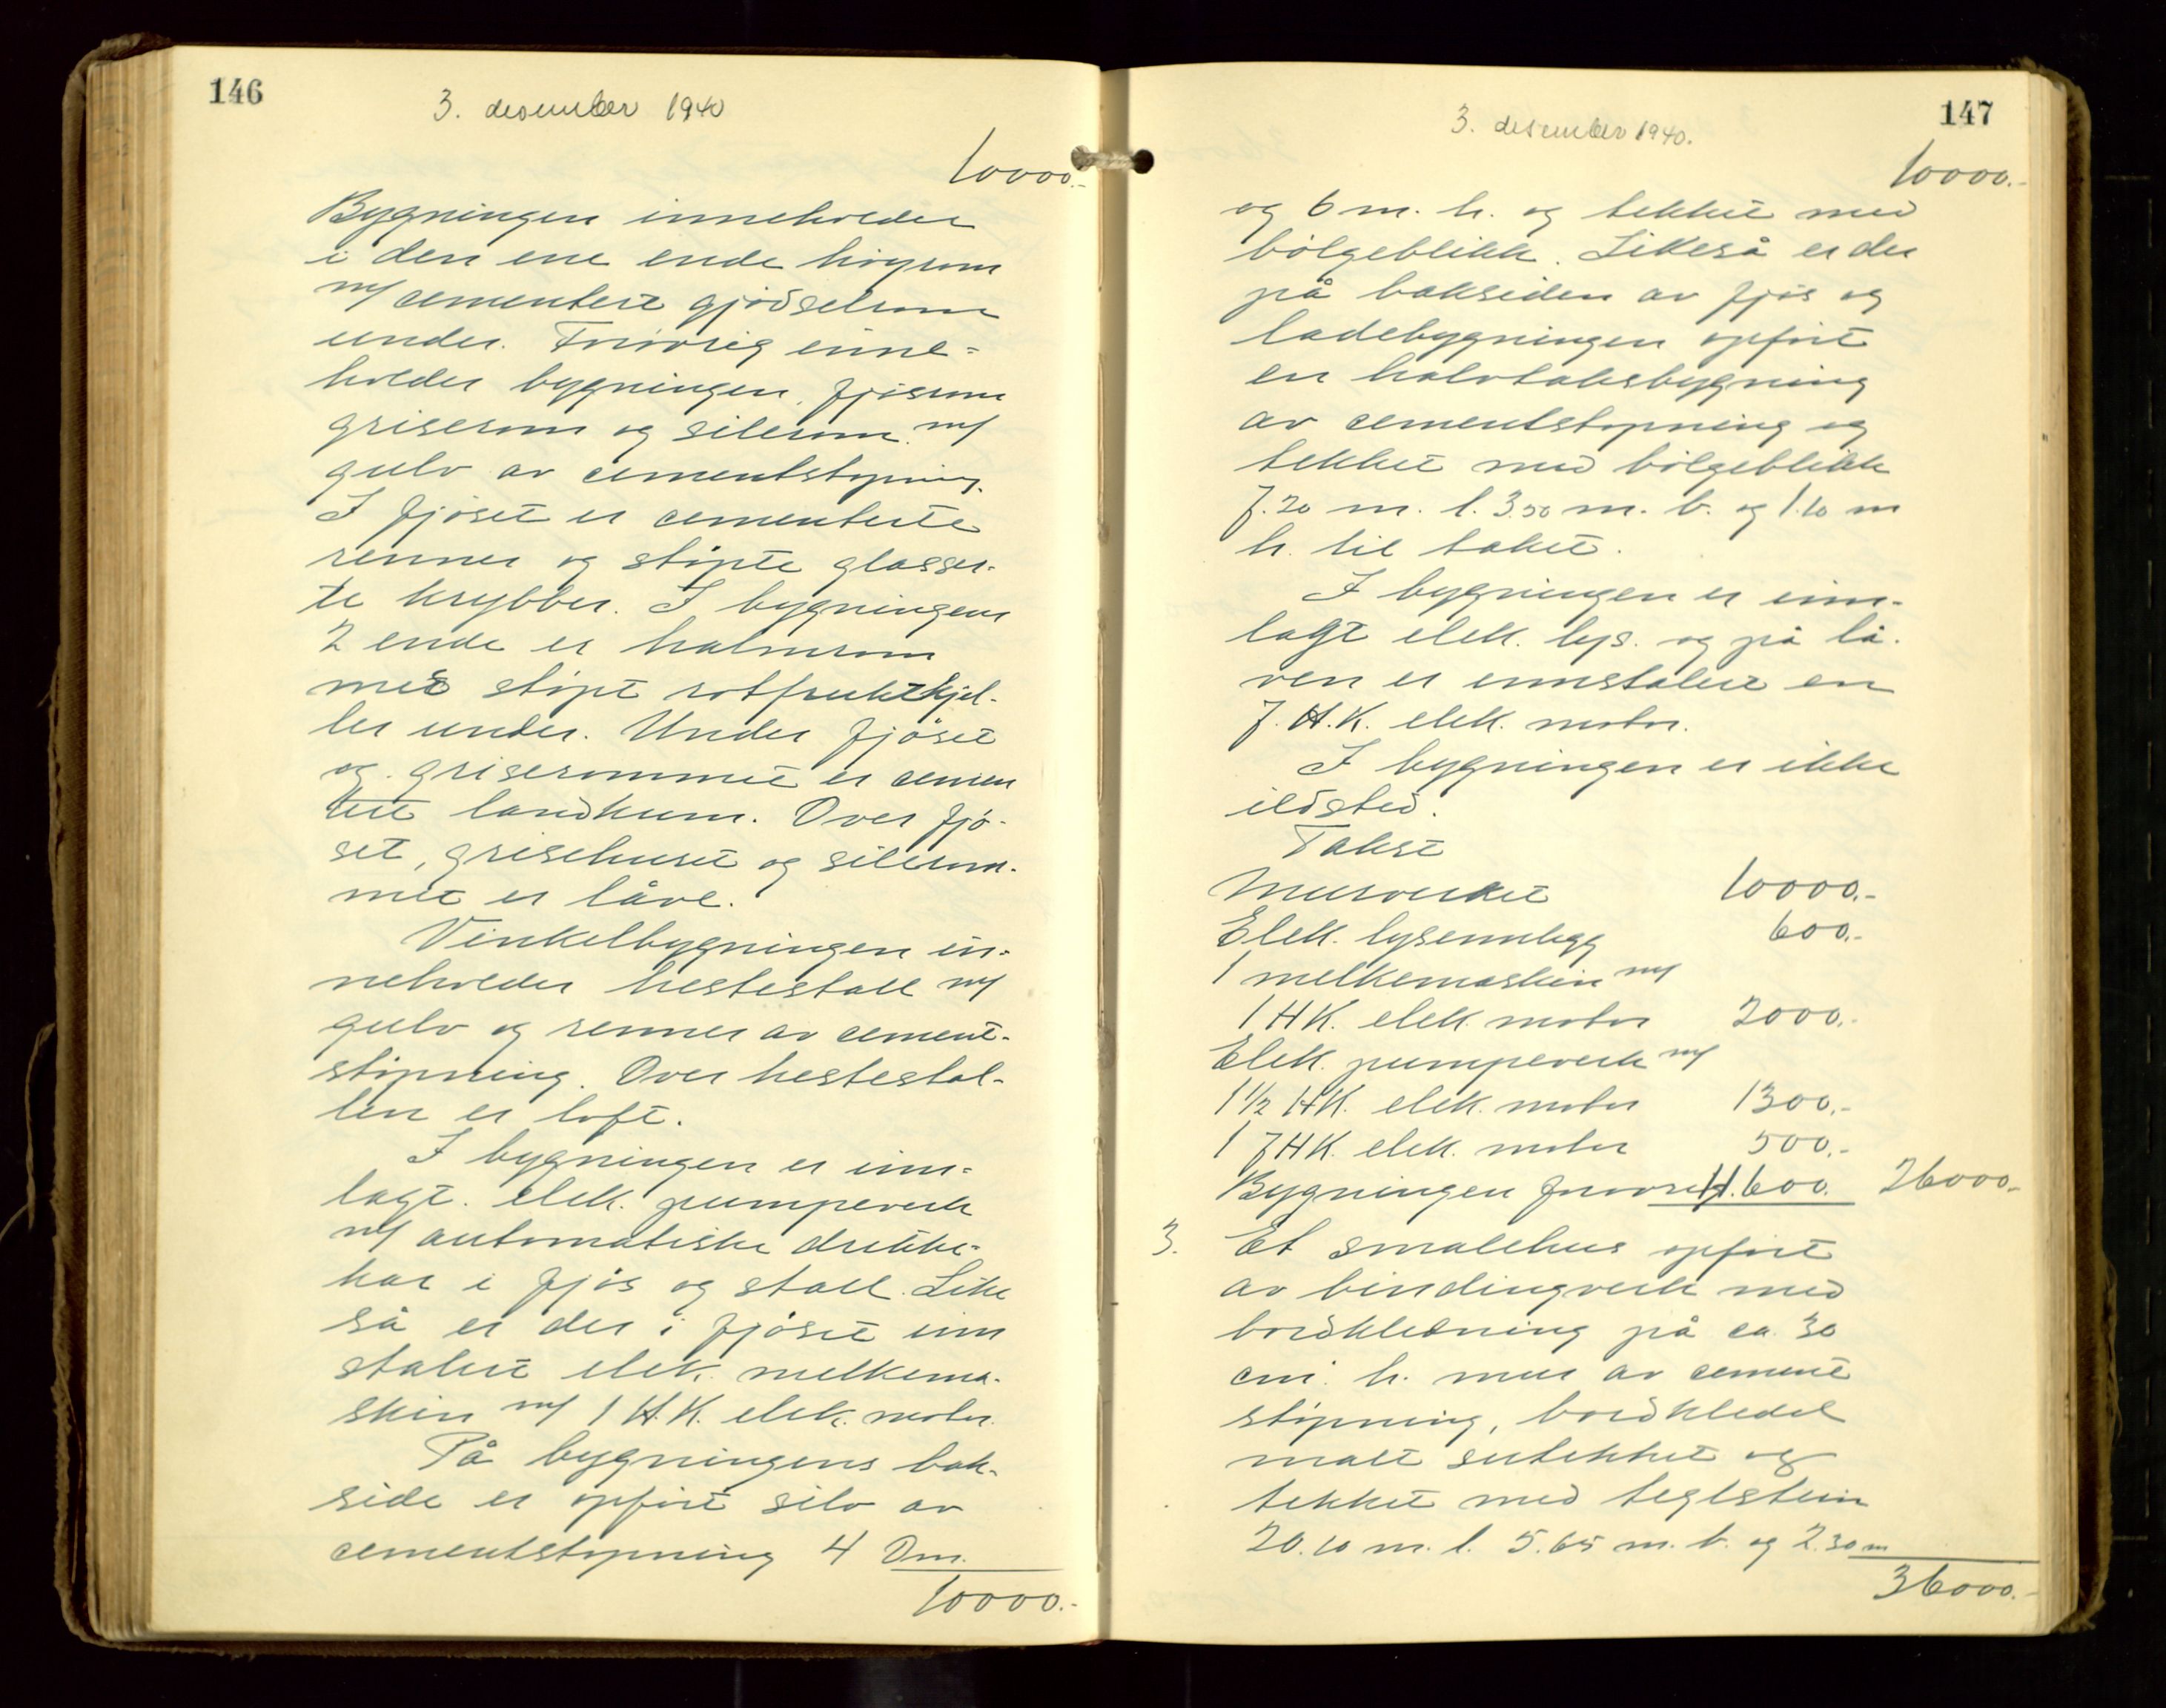 146
3. desember 1940
10000.-
Bygningen inneholder
i den ene ende höyrom
m/ cementert gjödselrom
under. Forövrig inne=
holder bygningen, fjösrom
griserom og silerom m/
gulv av cementstöpning.
I fjöset er cementerte
renner og stöpte glasser-
te krybber. I bygningens
2 ende er halmrom
med stöpt rotfruktkjel-
ler under. Under fjöset
og griserommet er cemen
tert landkum. Over fjö-
set, grisehuset og silerom-
met er låve.
Vinkelbygningen in-
neholder hestestall m/
gulv og renner av cement-
stöpning. Over hestestal-
len er loft.
I bygningen er inn-
lagt elek. pumpeverk
m/ automatiske drikke-
kar i fjös og stall. Like
så er der i fjöset inn
stalert elek. melkema-
skin m/ 1 H.K. elek. motor.
På bygningens bak-
side er opfört silo av
cementstöpning 4 Dm.
10000.-
147
3. desember 1940.
10000.-
og 6 m. h. og tekket med
bölgeblikk. Likeså er der
på baksiden av fjös og
ladebygningen opfört
en halvtaksbygning
av cementstöpning og
tekket med bölgeblikk
7.20 m. l. 3.50 m. b. og 1.10 m
h. til taket.
I bygningen er inn-
lagt elek. lys. og på lå-
ven er innstalert en
7. H.K. elek. motor.
I bygningen er ikke
ildsted.
Takst
Murverket 10000.-
Elek. lysannlegg 600.-
1 melkemaskin m/
1 HK. elek. motor 2000.-
Elek. pumpeverk m/
1 1/2 HK. elek. motor 1300.-
1 7 HK. elek. motor 500.-
Bygningen forövrig 11.600. 26000.-
3. Et smalehus opfört
av bindingverk med
bordkledning på ca. 30
cm. h. mur av cement
stöpning, bordkledd
malt sutekket og
tekket med teglstein
20.10 m. l. 5.65 m. b. og 2.30 m
36000.-